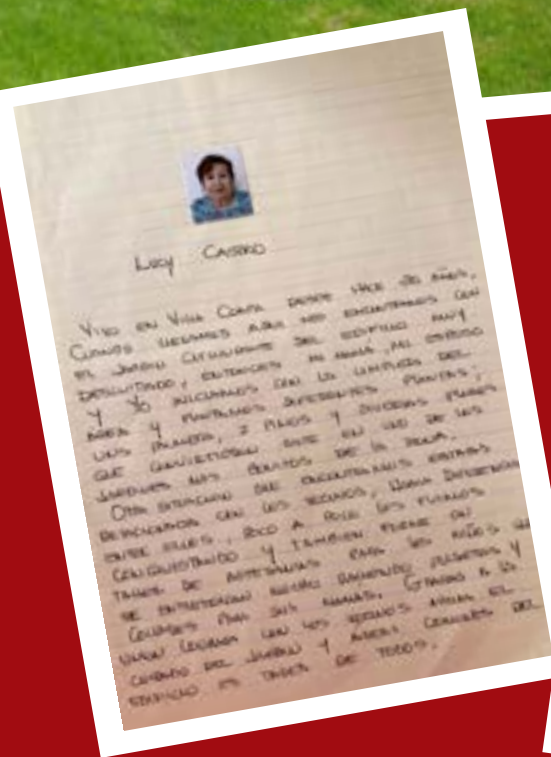 Lucy Castro
Vivo en Villa Coapa desde hace 20 años,
Cuando llegamos aquí nos encontramos con
el jardín circundante del edificio muy
descuidado, entonces mi mamá, mi esposo
y yo iniciamos con la limpieza del
área y plantamos diferentes plantas;
una palmera, 2 pinos y diversas plantas
que convirtieron este en uno de los
jardines más bonitos de la zona.
Otra situación que encontramos
con los vecinos, había diferencias
entre ellos, poco a poco los fuimos
conquistando y también
taller de artesanías para los niños
se entretenían mucho haciendo pulseras y
collares para sus mamás. Gracias a la
con los vecinos ahora el
cuidado del jardín y áreas comunes del
edificio es tarea de todos.